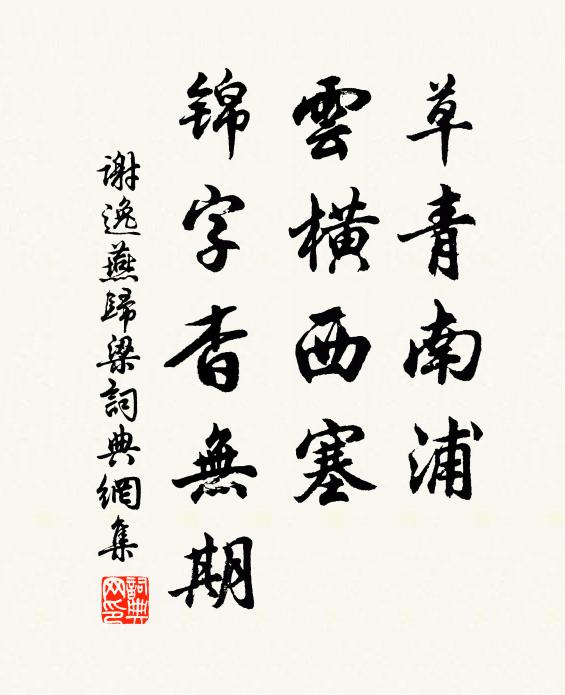 草青南浦
雲橫西塞
锦字杳無期
谢逸燕歸梁詞典網集
詞典網印